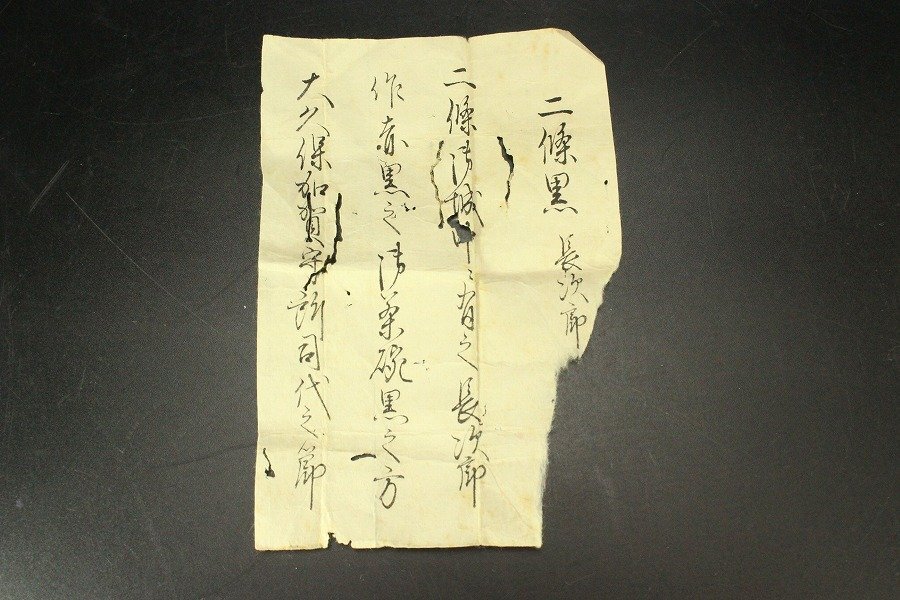 二條黒 長次郎
二條御城中ニ有之長次郎
作赤黒之御茶碗黒之方
大久保加賀守所司代之節